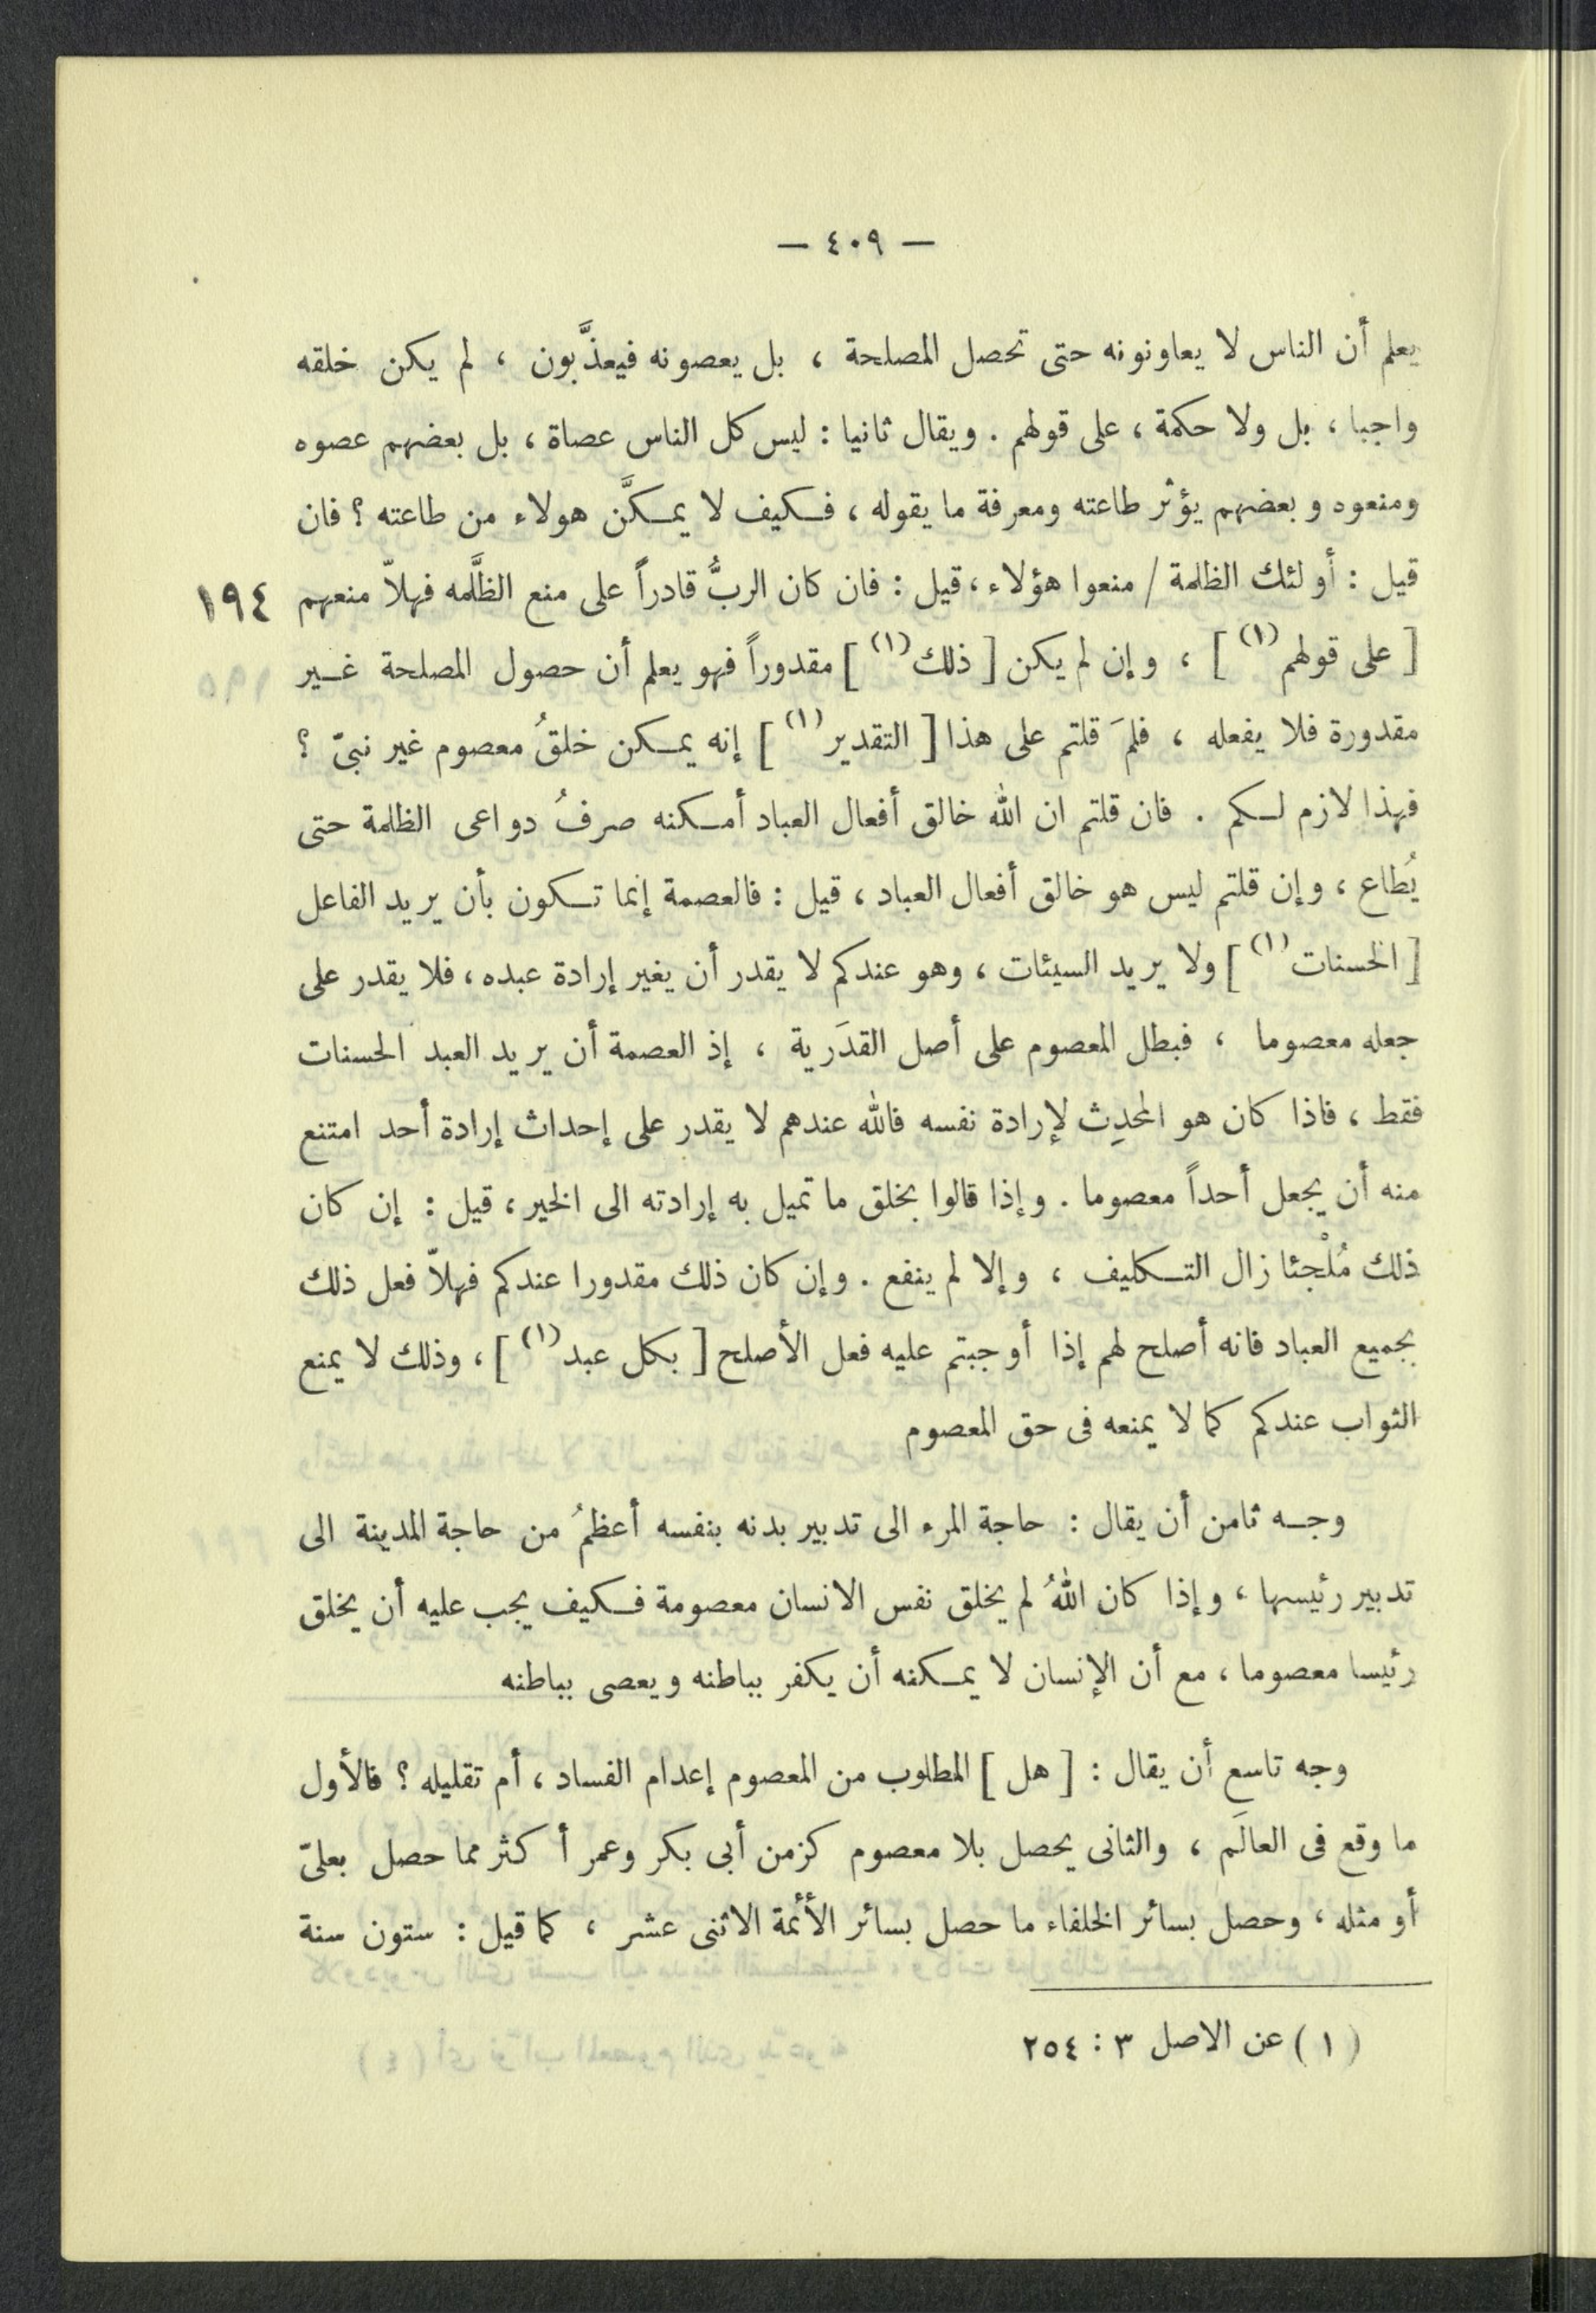 — ٤٠٩ —
يعلم أن الناس لا يعاونونه حتى تحصل المصلحة ، بل يعصونه فيعذَّبون ، لم يكن خلقه
واجبا ، بل ولا حكمة ، على قولهم . ويقال ثانيا : ليس كل الناس عصاة ، بل بعضهم عصوه
ومنعوه وبعضهم يؤثر طاعته ومعرفة ما يقوله ، فكيف لا يمكَّن هولاء من طاعته ؟ فان
قيل : أولئك الظلمة / منعوا هؤلاء ، قيل : فان كان الربُّ قادراً على منع الظَّلمه فهلاّ منعهم ١٩٤
[ على قولهم (١) ] ، وإن لم يكن [ ذلك (١) ] مقدوراً فهو يعلم أن حصول المصلحة غير
مقدورة فلا يفعله ، فلمَ قلتم على هذا [ التقدير (١) ] إنه يمكن خلقُ معصوم غير نبىّ ؟
فهذا لازم لكم . فان قلتم ان الله خالق أفعال العباد أمكنه صرفُ دواعى الظلمة حتى
يُطاع ، وإن قلتم ليس هو خالق أفعال العباد ، قيل : فالعصمة إنما تكون بأن يريد الفاعل
[ الحسنات (١) ] ولا يريد السيئات ، وهو عندكم لا يقدر أن يغير إرادة عبده ، فلا يقدر على
جعله معصوما ، فبطل المعصوم على أصل القدَرية ، إذ العصمة أن يريد العبد الحسنات
فقط ، فاذا كان هو المحدِث لإرادة نفسه فالله عندهم لا يقدر على إحداث إرادة أحد امتنع
منه أن يجعل أحداً معصوما . وإذا قالوا يخلق ما تميل به إرادته الى الخير ، قيل : إن كان
ذلك مُلْجئا زال التكليف ، وإلا لم ينفع . وإن كان ذلك مقدورا عندكم فهلاّ فعل ذلك
بجميع العباد فانه أصلح لهم إذا أوجبتم عليه فعل الأصلح [ بكل عبد (١) ] ، وذلك لا يمنع
الثواب عندكم كما لا يمنعه فى حق المعصوم
وجه ثامن أن يقال : حاجة المرء الى تدبير بدنه بنفسه أعظمُ من حاجة المدينة الى
تدبير رئيسها ، وإذا كان اللهُ لم يخلق نفس الانسان معصومة فكيف يجب عليه أن يخلق
رئيسا معصوما ، مع أن الإنسان لا يمكنه أن يكفر بباطنه ويعصى بباطنه
وجه تاسع أن يقال : [ هل ] المطلوب من المعصوم إعدام الفساد ، أم تقليله ؟ فالأول
ما وقع فى العالَم ، والثانى يحصل بلا معصوم كزمن أبى بكر وعمر أكثر مما حصل بعلىّ
أو مثله ، وحصل بسائر الخلفاء ما حصل بسائر الأئمة الاثنى عشر ، كما قيل : ستون سنة
( ١ ) عن الاصل ٣ : ٢٥٤